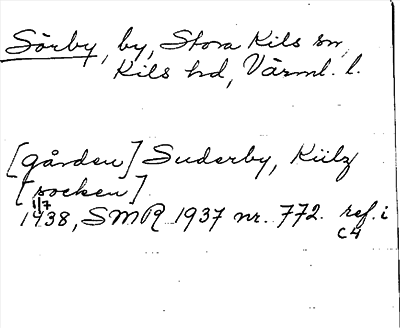 Sörby, by, Stora Kils sn,
Kils hd, Värml. l.
[gården] Suderby, Küλz
[socken]
1/7
1438, SMR 1937 nr. 772. ref. i
C4